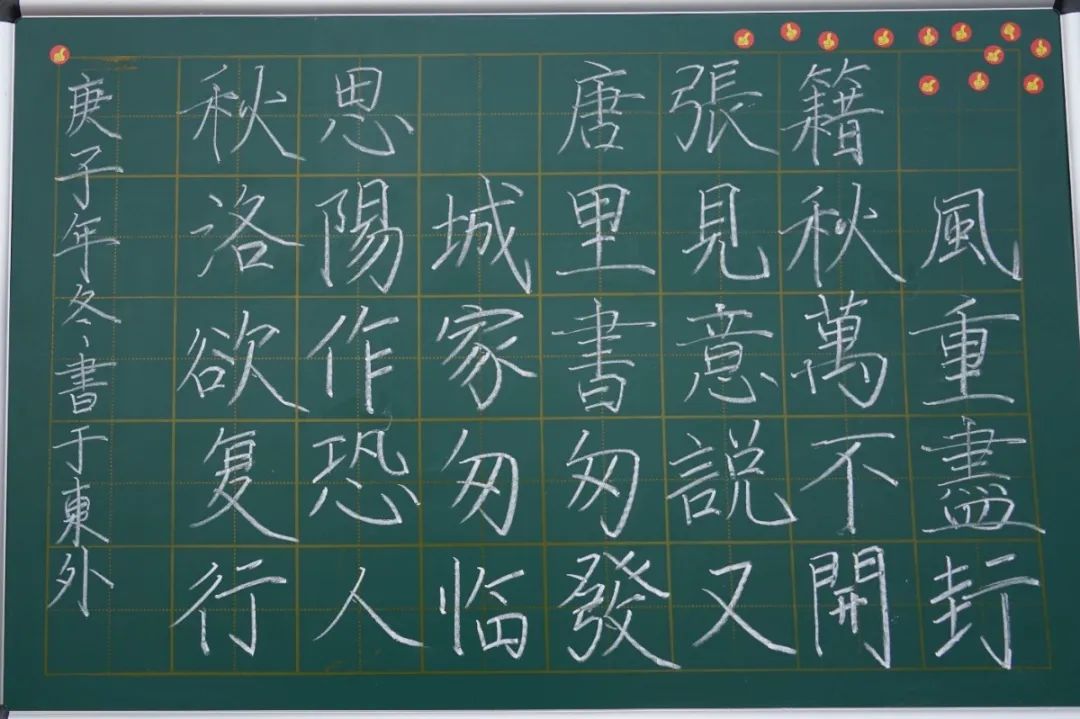 秋思 唐張籍
洛陽城里見秋風
欲作家書意萬重
复恐匆匆説不盡
行人临發又開封
庚子年冬書于東外